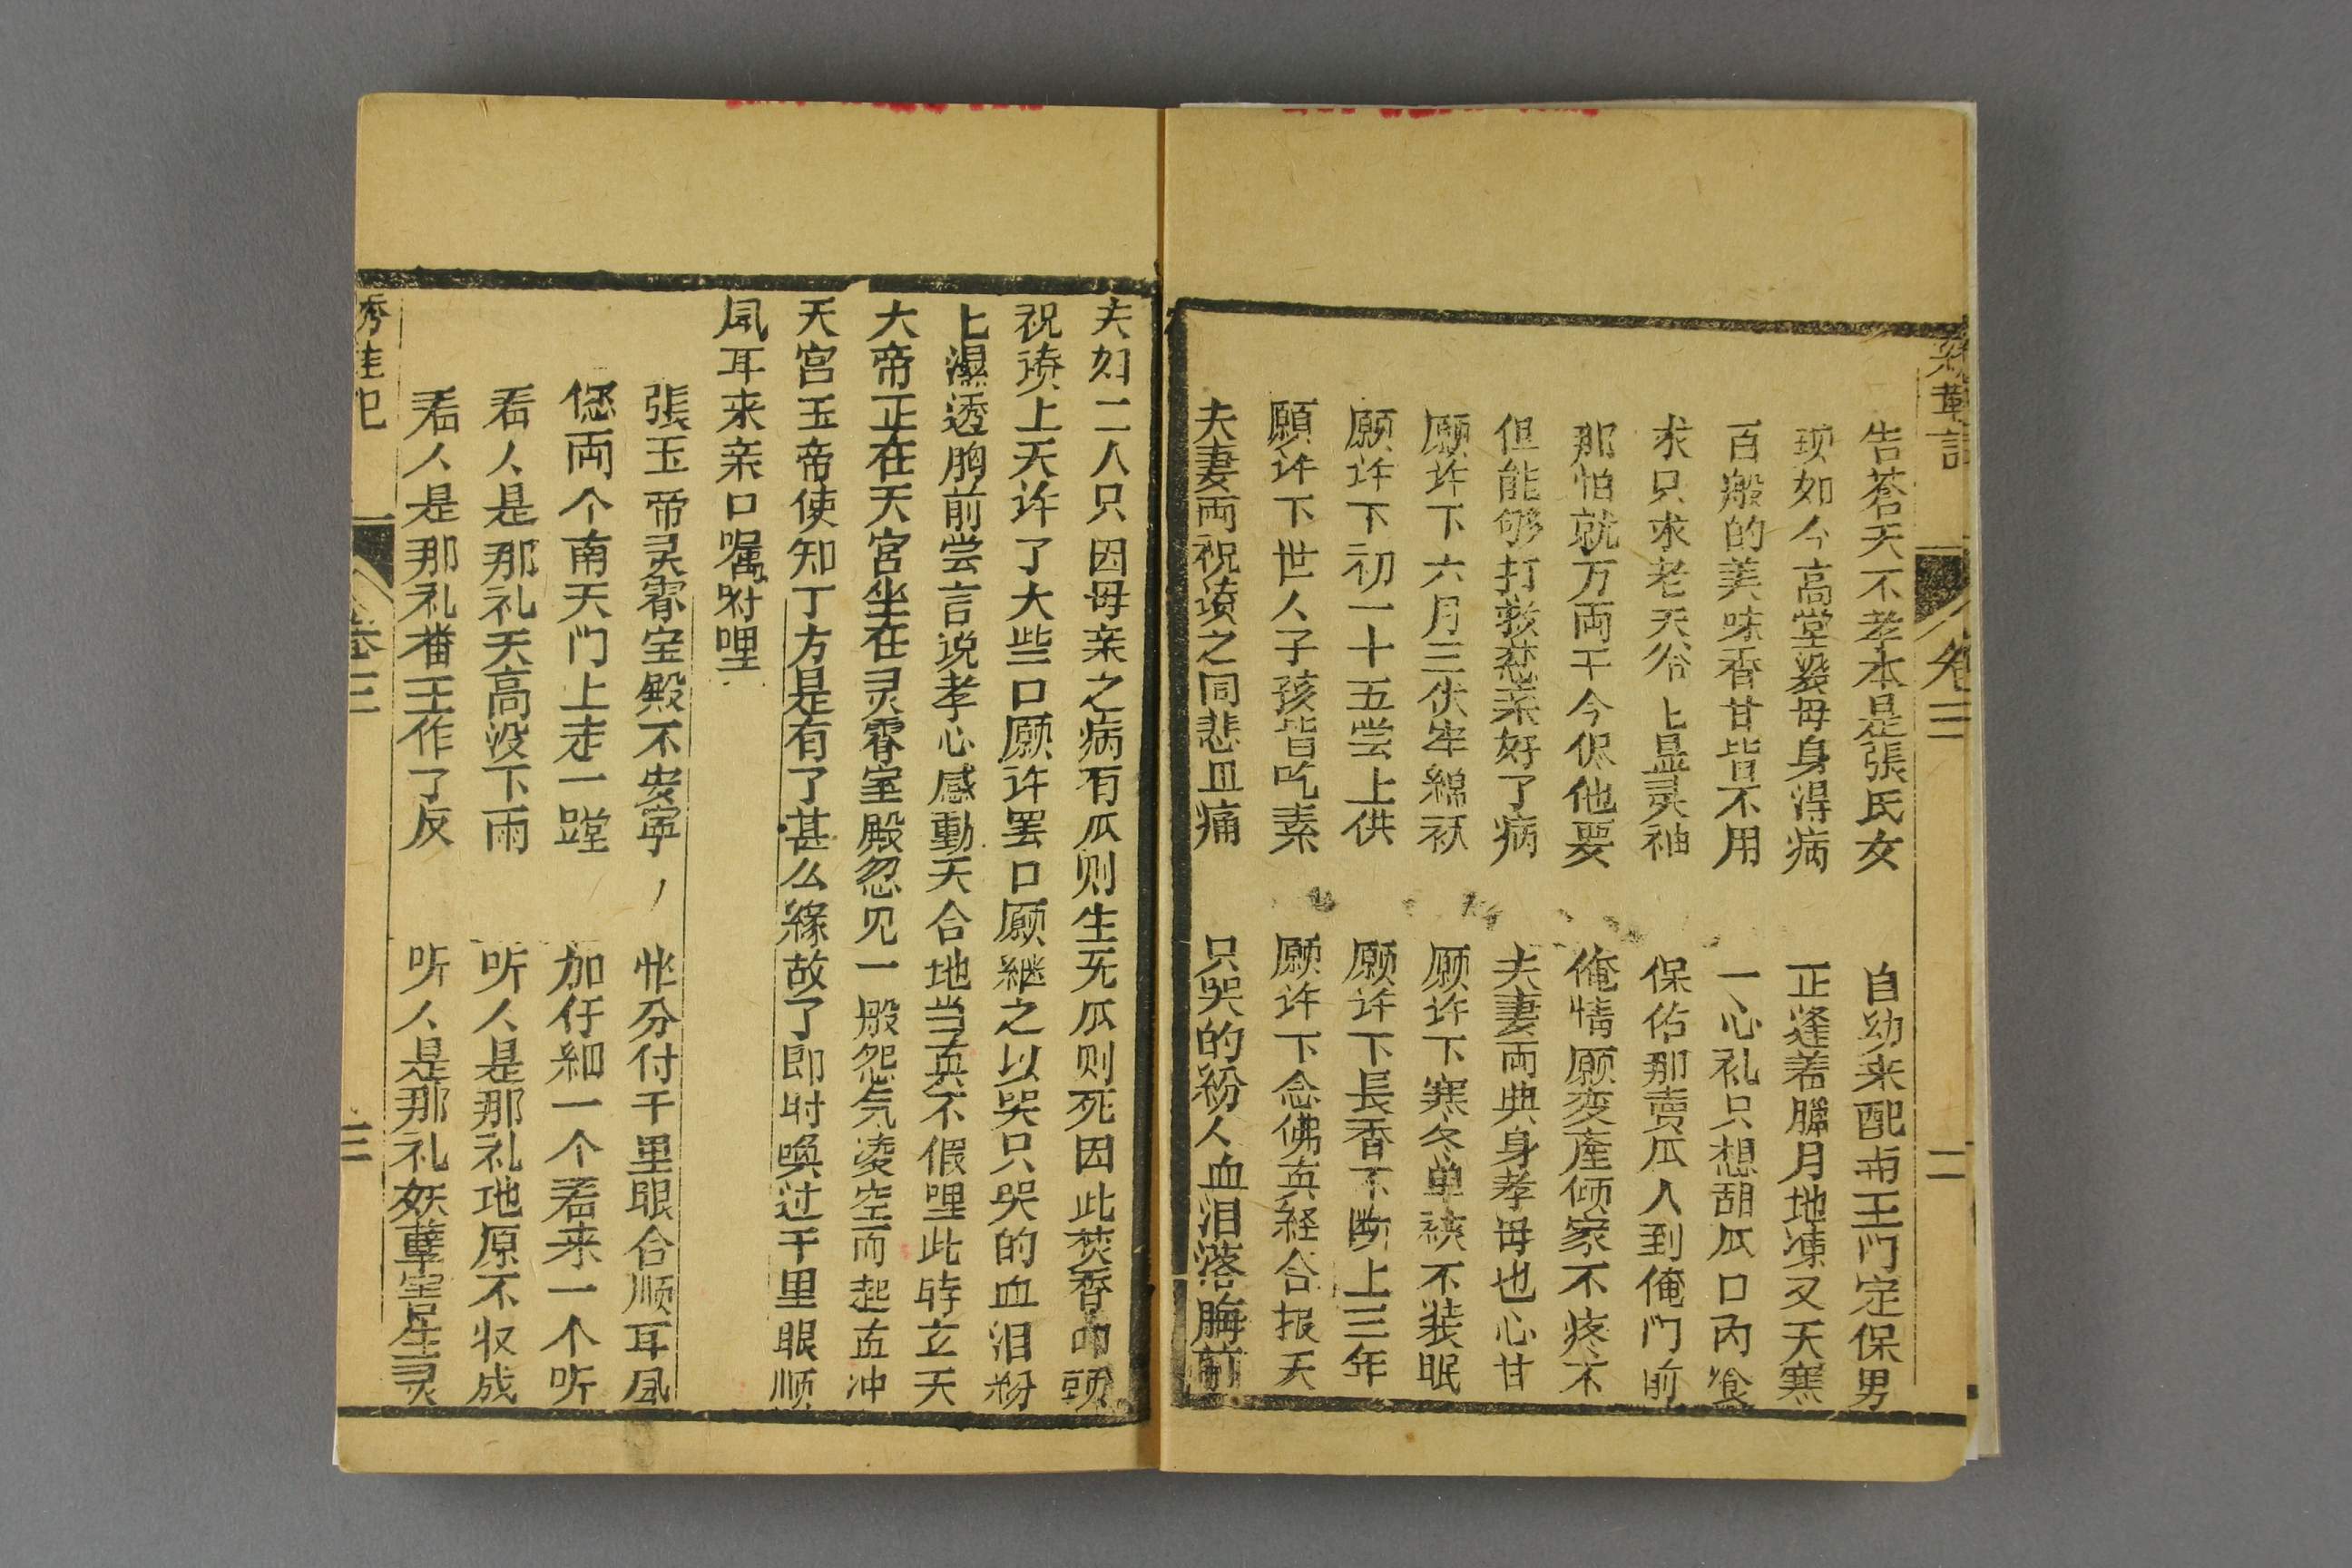 卷三
二
告蒼天不孝本是張氏女 自幼来配甫王门定保男
现如今高堂婆母身淂病 正逢着臘月地凍又天寒
百般的美味香甘皆不用 一心礼只想甜瓜口内飡
求只求老天爷上显灵神 保佑那賣瓜人到俺门前
那怕就万両千今俱他要 俺情願変產倾家不疼不
但能够打救慈亲好了病 夫妻両典身孝母也心甘
願许下六月三伏牢綿袄 願许下寒冬单裱不装眠
願许下初一十五尝上供 願许下長香不断上三年
願许下世人子孩皆吃素 願许下念佛真経合报天
夫妻両祝赞之同悲且痛 只哭的紛人血泪落胸前
夫妇二人只因母亲之病有瓜则生无瓜则死因此焚香叩頭
祝赞上天许了大些口願许罢口願継之以哭只哭的血泪粉
上濕透胸前尝言说孝心感動天合地当真不假哩此時立天
大帝正在天宫坐在灵霄室殿忽见一股怨気凌空而起直冲
天宫玉帝使知丁方是有了甚么緣故了即时唤过千里眼顺
風耳来亲口嘱咐哩
張玉帝灵霄宝殿不安寧 忙分付千里眼合顺耳風
您両个南天门上走一蹚 加仔細一个看来一个听
看人是那礼天高没下雨 听人是那礼地原不収成
看人是那礼番王作了反 听人是那礼妖孽害生灵
卷三
三